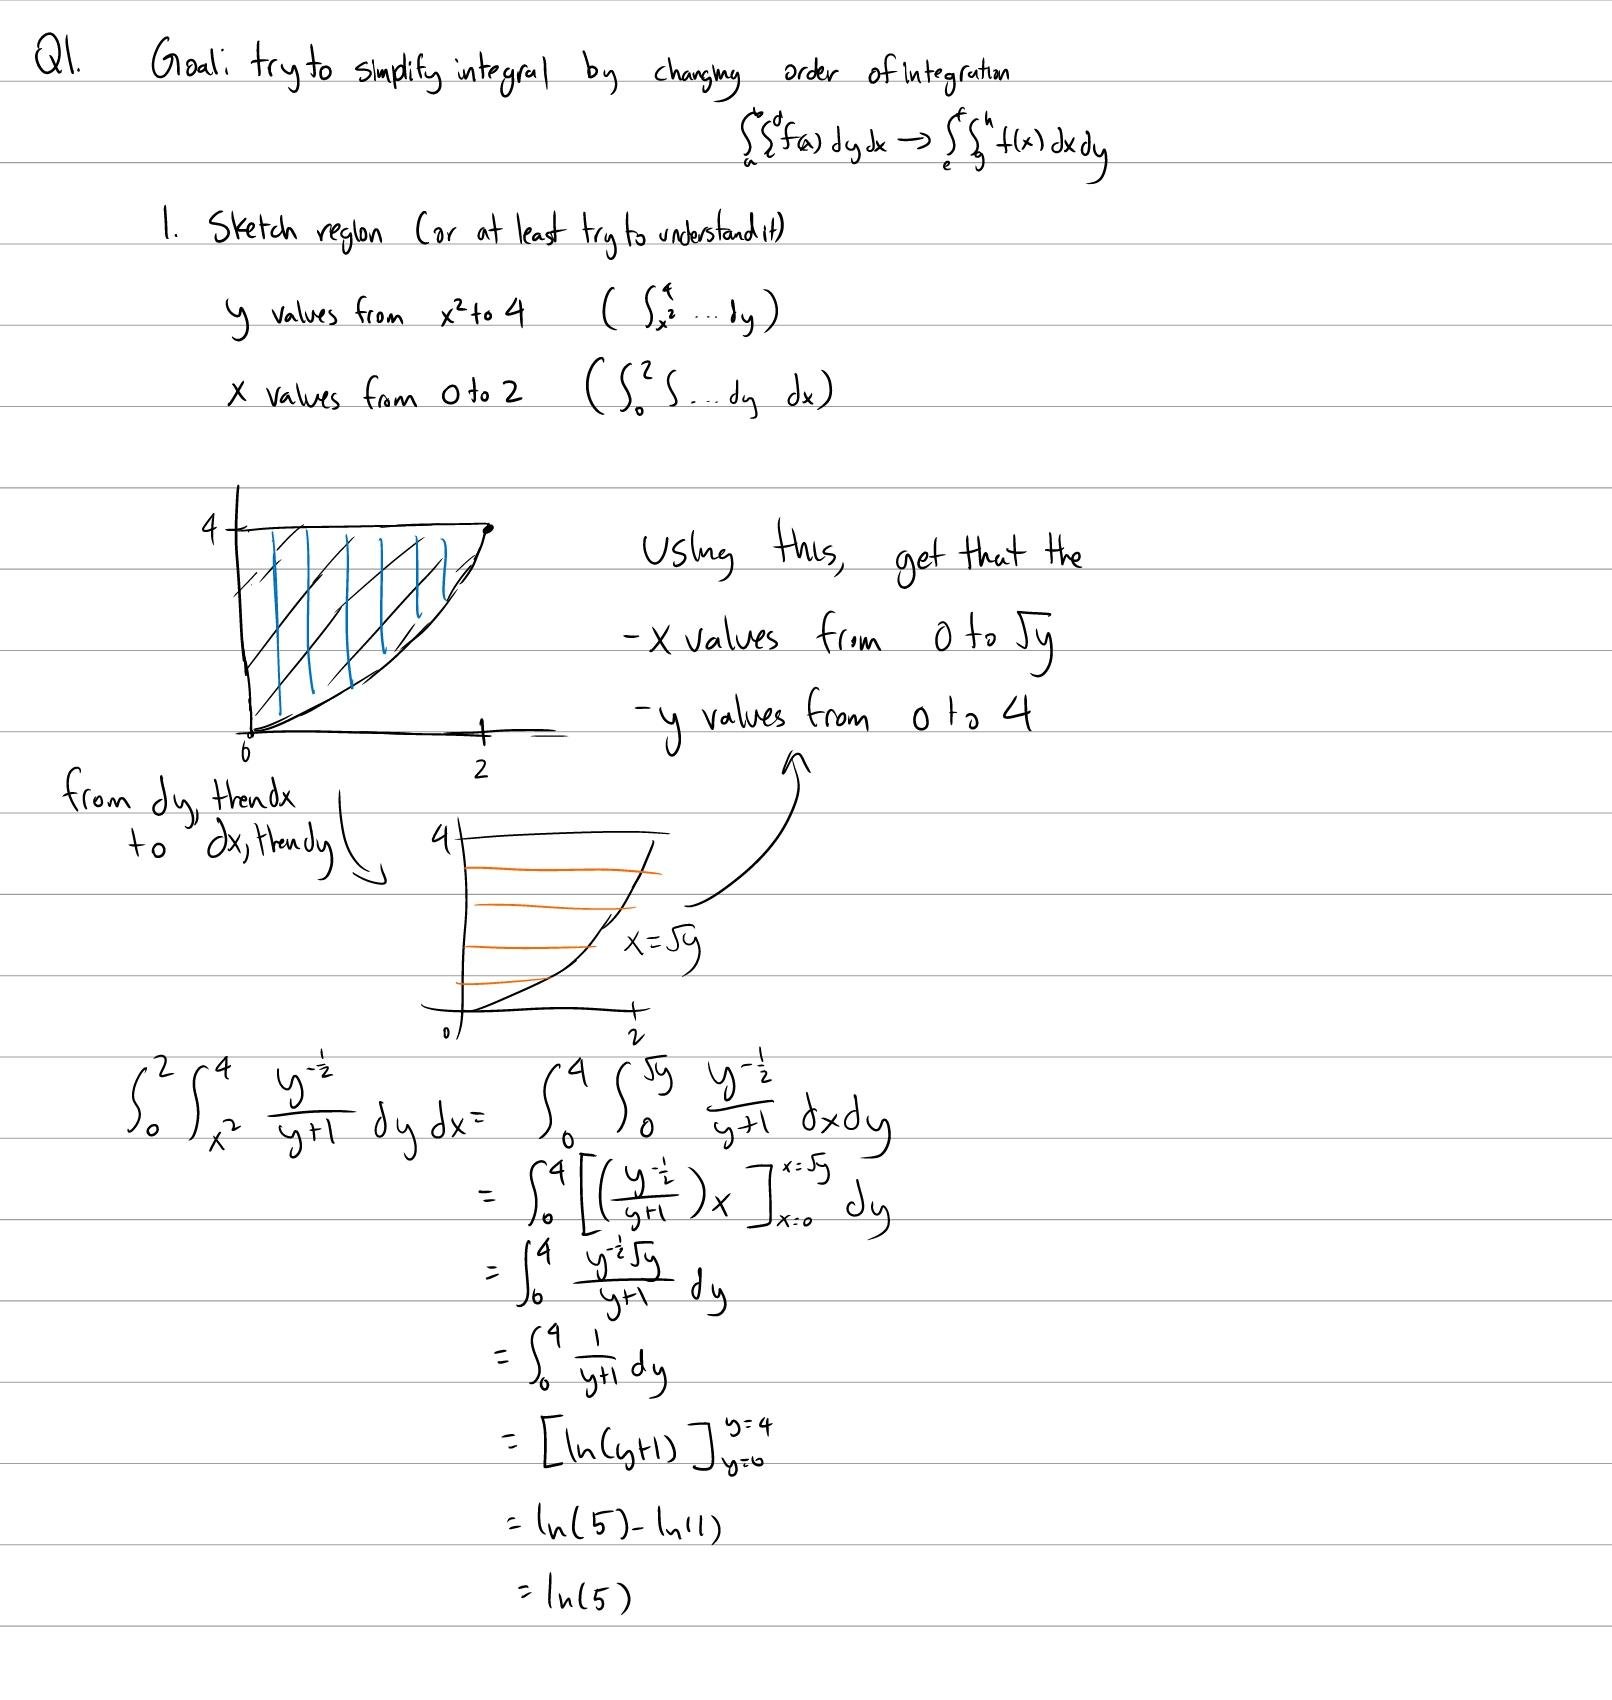 Q1. Goal: try to simplify integral by changing order of integration
∫ₐᵇ∫_c^d f(x) dy dx → ∫ₑᶠ∫_g^h f(x) dx dy
1. Sketch region (or at least try to understand it)
y values from x² to 4 (∫_{x²}^4 ... dy)
x values from 0 to 2 (∫_0^2 ∫ ... dy dx)
4
0
2
Using this, get that the
- x values from 0 to √y
- y values from 0 to 4
from dy, then dx
to dx, then dy
4
x=√y
0
2
∫_0^2 ∫_{x²}^4 y^{-1/2}/(y+1) dy dx = ∫_0^4 ∫_0^{√y} y^{-1/2}/(y+1) dx dy
= ∫_0^4 [(y^{-1/2}/(y+1)) x]_{x=0}^{x=√y} dy
= ∫_0^4 y^{-1/2}√y/(y+1) dy
= ∫_0^4 1/(y+1) dy
= [ln(y+1)]_{y=0}^{y=4}
= ln(5) - ln(1)
= ln(5)